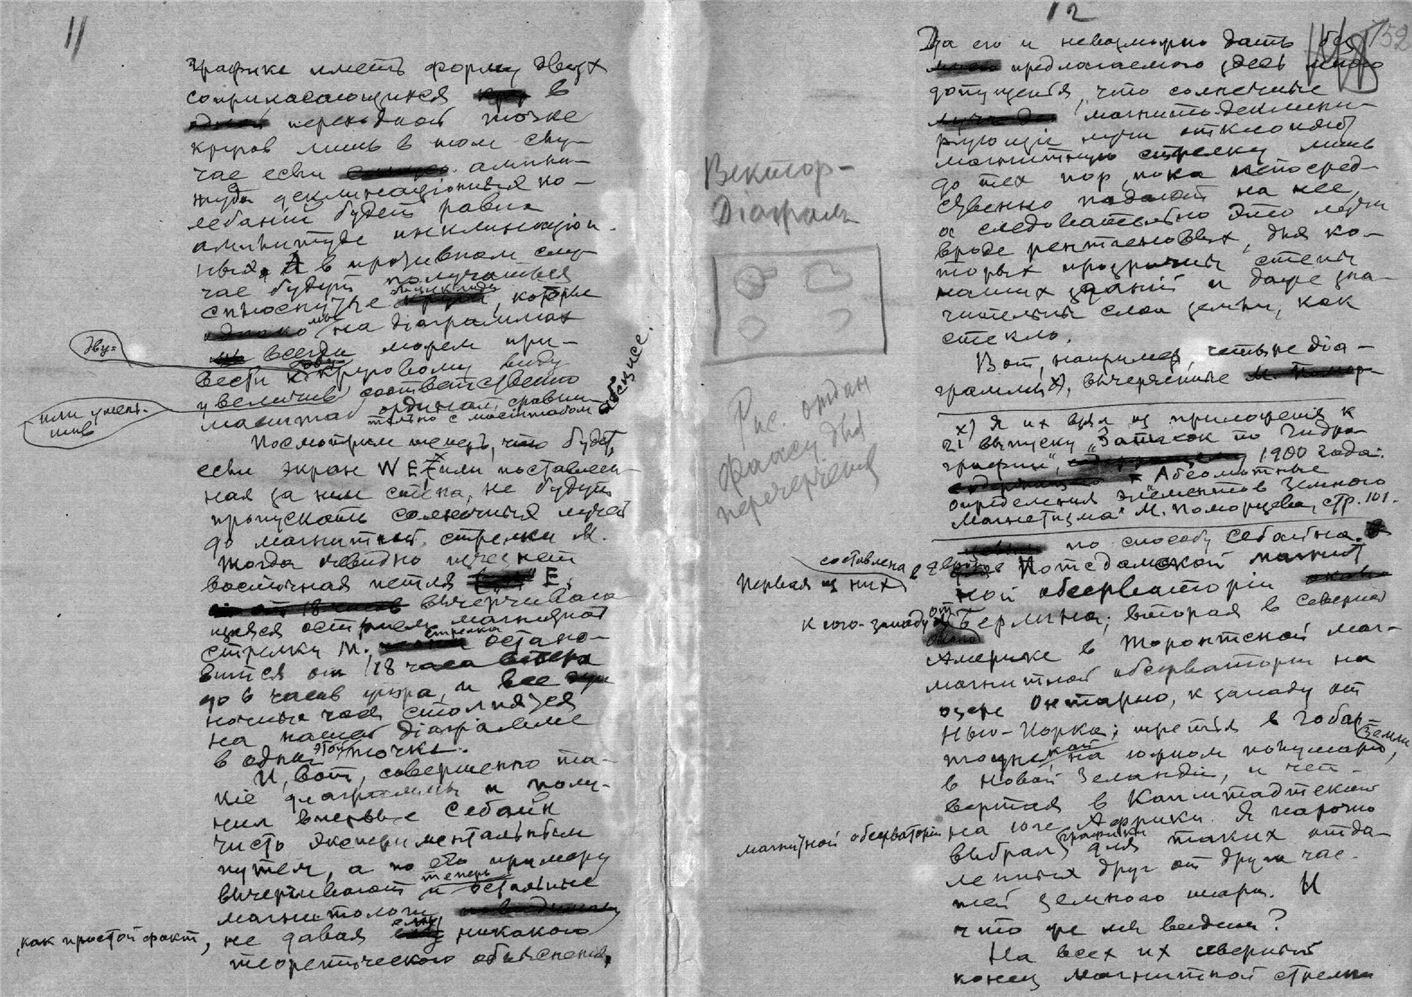 11
графике иметь форму двух
соприкасающихся в
переходной точке
кругов лишь в том слу-
чае если ампли-
туда деклинаціонных ко-
лебаній будет равна
амплитуде инклинаціон-
ных. А в противном слу-
чае будут получаться
сплюснутые эллипсы, которые
мы на діаграммах
всегда можем при-
вести к круговому виду
дву-
увеличив соответственно
или умень-
шив
масштаб ординат, сравни-
тельно с масштабом абсцисс.
Посмотрим теперь, что будет,
если экран WE или поставлен-
ная за ним стена, не будут
пропускать солнечных лучей
до магнитной стрелки М.
Тогда очевидно исчезнет
восточная петля Е,
вычерчиваю-
щаяся острием магнитной
стрелки М. стрелка остано-
вится от 18 часа вечера
до 6 часов утра, и все
ночные часы столпятся
на нашей діаграмме
в одной этой точке.
И, вот, совершенно та-
кие діаграммы и полу-
чил впервые Себайн
чисто экспериментальным
путем, а по его примеру
вычерчивают теперь и остальные
магнитологи
, как простой факт, не давая ему никакого
теоретического объяснения,
12
152
Вектор-
Діаграмы
Рис. отдан
Факсу для
перечерченія
Да его и невозможно дать без
предлагаемого здесь мною
допущенія, что солнечные
магнито-деклини-
рующіе лучи отклоняют
магнитную стрелку лишь
до тех пор, пока непосред-
ственно падают на нее,
а следовательно это лучи
вроде рентгеновых, для ко-
торых прозрачны стены
наших зданій и даже зна-
чительные слои земли, как
стекло.
Вот, например, четыре діа-
граммы х), вычерченные
х) Я их взял из приложенія к
21 выпуску „Записок по Гидро-
графии", 1900 года:
„Абсолютные
определенія элементов земного
магнетизма" М. Поморцева, стр. 101.
по способу Себайна.
Первая из них составлена в Потсдамской магнит-
ной обсерваторіи
к юго-западу от Берлина; вторая в Северной
Америке в Торонтской маг-
магнитной обсерватории на
озере Онтарио, к западу от
Нью-Иорка; третья в Гобар-
тоунской на южном полушарии,
в Новой Зеландіи, и чет-
вертая в Капштадтской
магнитной обсерватории на юге Африки. Я нарочно
выбрал графики для таких отда-
ленных друг от друга час-
тей земного шара. И
что же мы видим?
На всех их северный
конец магнитной стрелки